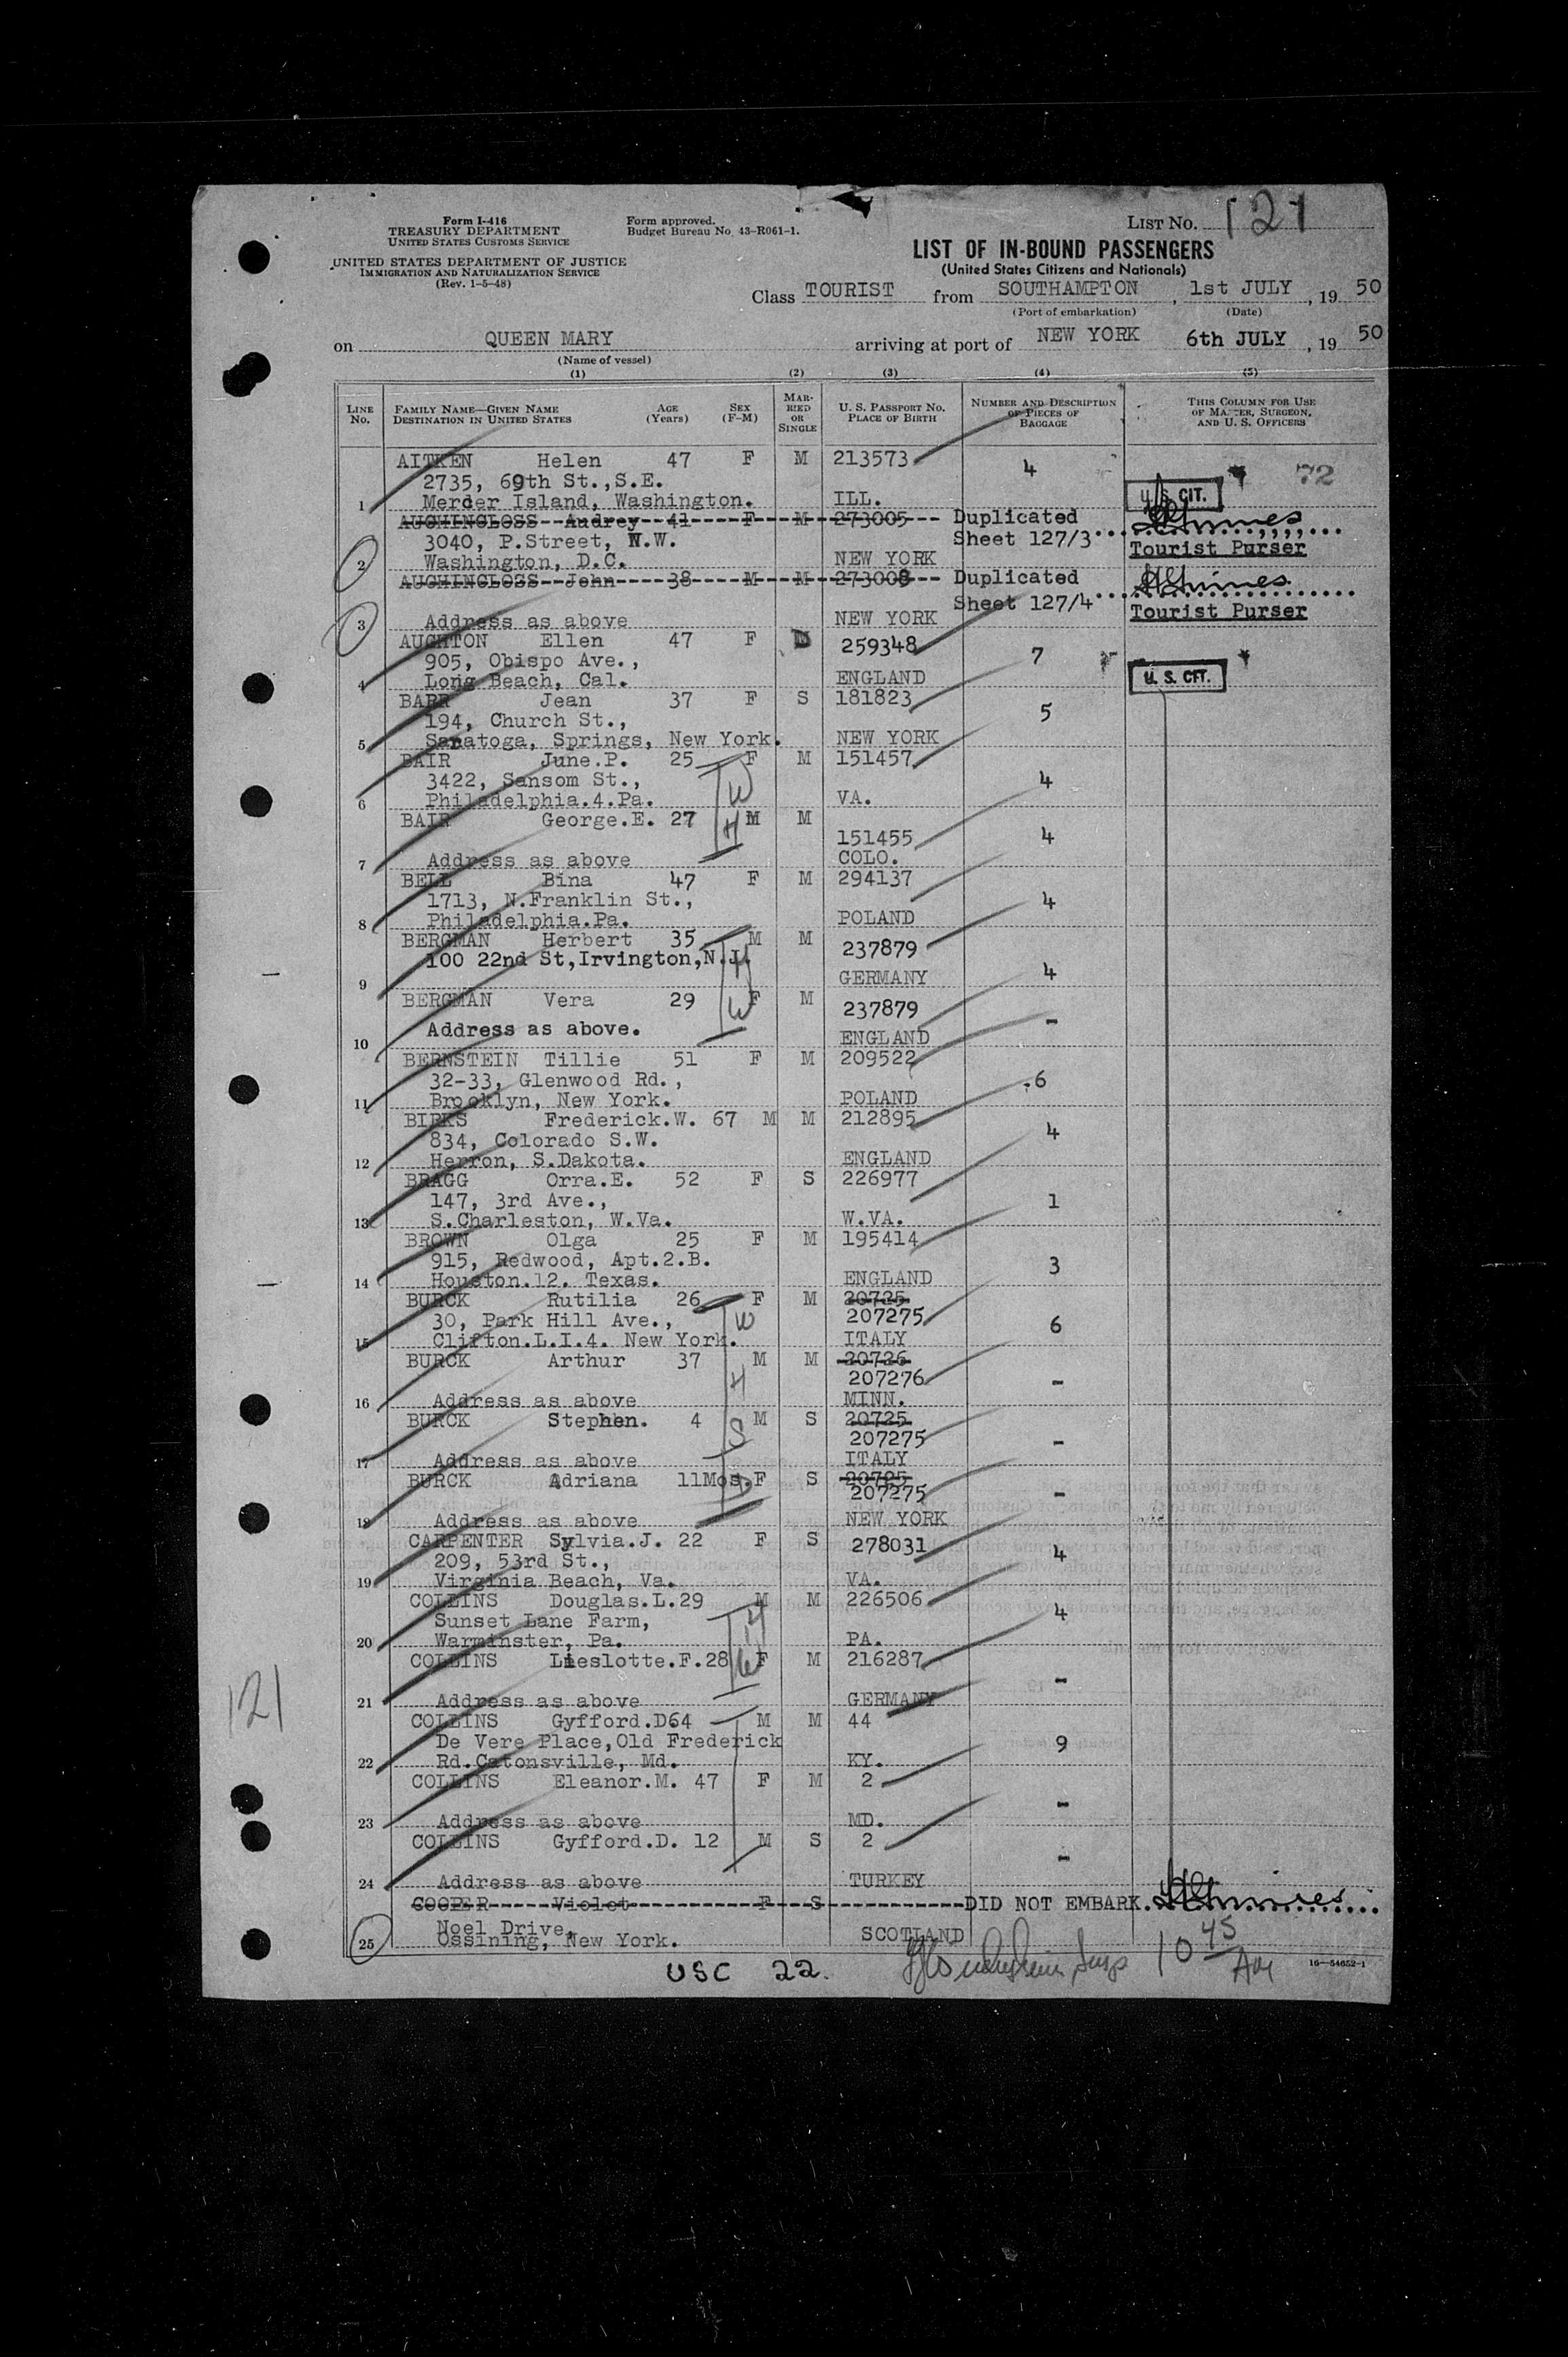 Form I-416
TREASURY DEPARTMENT
UNITED STATES CUSTOMS SERVICE
UNITED STATES DEPARTMENT OF JUSTICE
IMMIGRATION AND NATURALIZATION SERVICE
(Rev. 1-5-48)
Form approved.
Budget Bureau No. 43-R061-1.
LIST NO. 121
LIST OF IN-BOUND PASSENGERS
(United States Citizens and Nationals)
Class TOURIST from SOUTHAMPTON, 1st JULY, 19 50
(Port of embarkation) (Date)
on QUEEN MARY arriving at port of NEW YORK 6th JULY, 19 50
(Name of vessel)
(1) (2) (3) (4) (5)
LINE No. FAMILY NAME—GIVEN NAME DESTINATION IN UNITED STATES AGE (Years) SEX (F-M) MARRIED OR SINGLE U. S. PASSPORT NO. PLACE OF BIRTH NUMBER AND DESCRIPTION OF PIECES OF BAGGAGE THIS COLUMN FOR USE OF MASTER, SURGEON, AND U. S. OFFICERS
AITKEN Helen 47 F M 213573 4 72
2735, 69th St.,S.E. U.S. CIT.
1 Mercer Island, Washington. ILL.
AUCHINCLOSS Audrey 41 F M 273005 Duplicated
3040, P.Street, N.W. Sheet 127/3
2 Washington, D.C. NEW YORK Tourist Purser
AUCHINCLOSS John 38 M M 273008 Duplicated
Sheet 127/4
3 Address as above NEW YORK Tourist Purser
AUGHTON Ellen 47 F 259348 7
905, Obispo Ave.,
4 Long Beach, Cal. ENGLAND U. S. CIT.
BARR Jean 37 F S 181823 5
194, Church St.,
5 Saratoga, Springs, New York. NEW YORK
BAIR June.P. 25 F M 151457 4
3422, Sansom St., W
6 Philadelphia.4.Pa. VA.
BAIR George.E. 27 M M 151455 4
H
7 Address as above COLO.
BELL Bina 47 F M 294137 4
1713, N.Franklin St.,
8 Philadelphia.Pa. POLAND
BERGMAN Herbert 35 M M 237879 4
100 22nd St,Irvington,N.J. H
9 GERMANY
BERGMAN Vera 29 F M 237879 -
W
10 Address as above. ENGLAND
BERNSTEIN Tillie 51 F M 209522 6
32-33, Glenwood Rd.,
11 Brooklyn, New York. POLAND
BIRKS Frederick.W. 67 M M 212895 4
834, Colorado S.W.
12 Herron, S.Dakota. ENGLAND
BRAGG Orra.E. 52 F S 226977 1
147, 3rd Ave.,
13 S.Charleston, W.Va. W.VA.
BROWN Olga 25 F M 195414 3
915, Redwood, Apt.2.B.
14 Houston.12. Texas. ENGLAND
BURCK Rutilia 26 F M 20725 6
30, Park Hill Ave., W 207275
15 Clifton.L.I.4. New York. ITALY
BURCK Arthur 37 M M 20726 -
H 207276
16 Address as above MINN.
BURCK Stephen. 4 M S 20725 -
S 207275
17 Address as above ITALY
BURCK Adriana 11Mos. F S 20725 -
D 207275
18 Address as above NEW YORK
CARPENTER Sylvia.J. 22 F S 278031 4
209, 53rd St.,
19 Virginia Beach, Va. VA.
COLLINS Douglas.L.29 M M 226506 4
Sunset Lane Farm, H
20 Warminster, Pa. PA.
COLLINS Lieslotte.F.28 F M 216287 -
W
21 Address as above GERMANY
COLLINS Gyfford.D64 M M 44 9
De Vere Place,Old Frederick
22 Rd.Catonsville, Md. KY.
COLLINS Eleanor.M. 47 F M 2 -
23 Address as above MD.
COLLINS Gyfford.D. 12 M S 2 -
24 Address as above TURKEY
COOPER Violet F S DID NOT EMBARK.
Noel Drive,
25 Ossining, New York. SCOTLAND
USC 22. 10 45 AM
16—54652-1
121